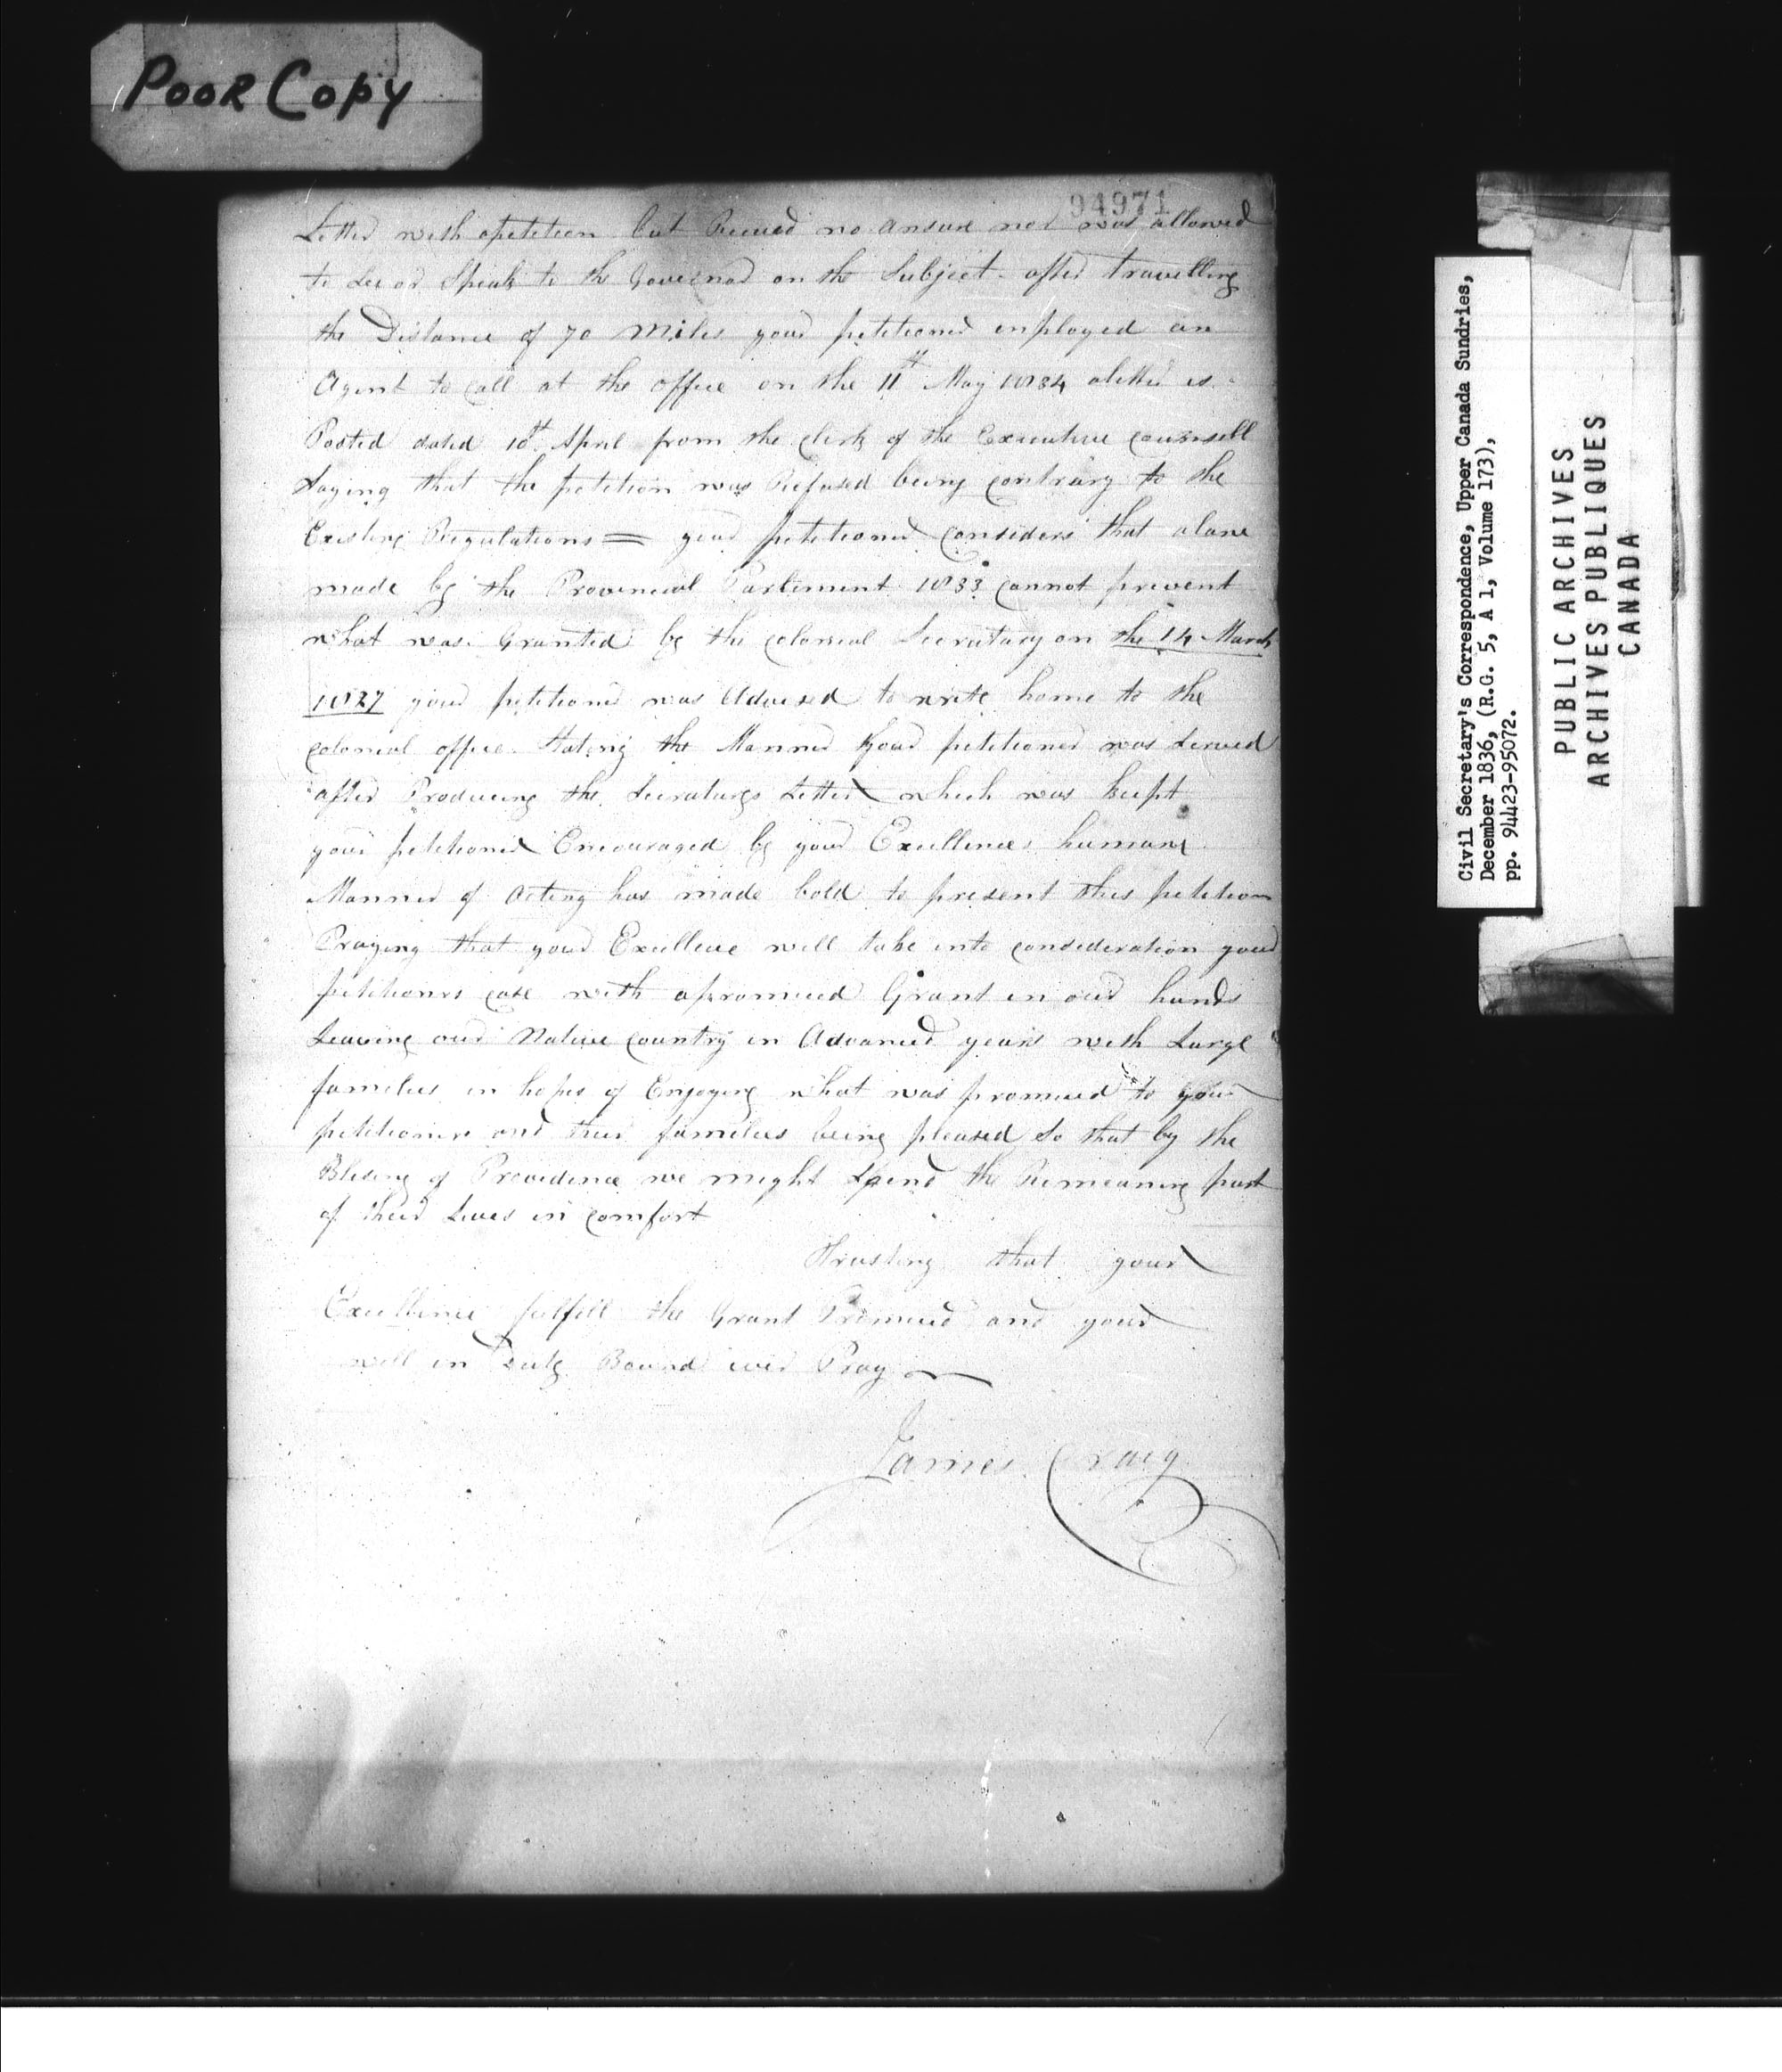 Poor Copy
94971
Letter with apetition but Received no ansure nor was allowed
to See or Speak to the Governor on the Subject after travelling
the Distance of 70 Miles your petitioner inployed an
Agent to Call at the office on the 11th May 1834 aletter is
Posted dated 10th April from the clerk of the Executive counsell
Saying that the petition was Refused being contrary to the
Existing Regulations = your petitioner considers that alawe
made by the Provincial Parliment 1833 cannot prevent
what was Granted by the colonial Secratary on the 14 March
1827 your petitioner was Advised to write home to the
colonial office Stating the Manner your petitioner was Served
after Producing the Secraturys Letter which was keept
your petitioner Encouraged by your Excellences humane
Manner of Acting has made bold to present this petition
Praying that your Excellence will take into consideration your
petitioners case with apromised Grant in our hands
Leaving our Native Country in Advanced years with Large
families in hopes of Enjoying what was promised to your
petitioners and their families being pleased So that by the
Blesing of Providence we might Spend the Remeaning part
of their Lives in comfort
Thrusting that your
Excellence fulfill the Grant Promised and your
will in Duty Bound ever Pray
James Craig
Civil Secretary's Correspondence, Upper Canada Sundries,
December 1836, (R.G. 5, A 1, Volume 173),
pp. 94423-95072.
PUBLIC ARCHIVES
ARCHIVES PUBLIQUES
CANADA